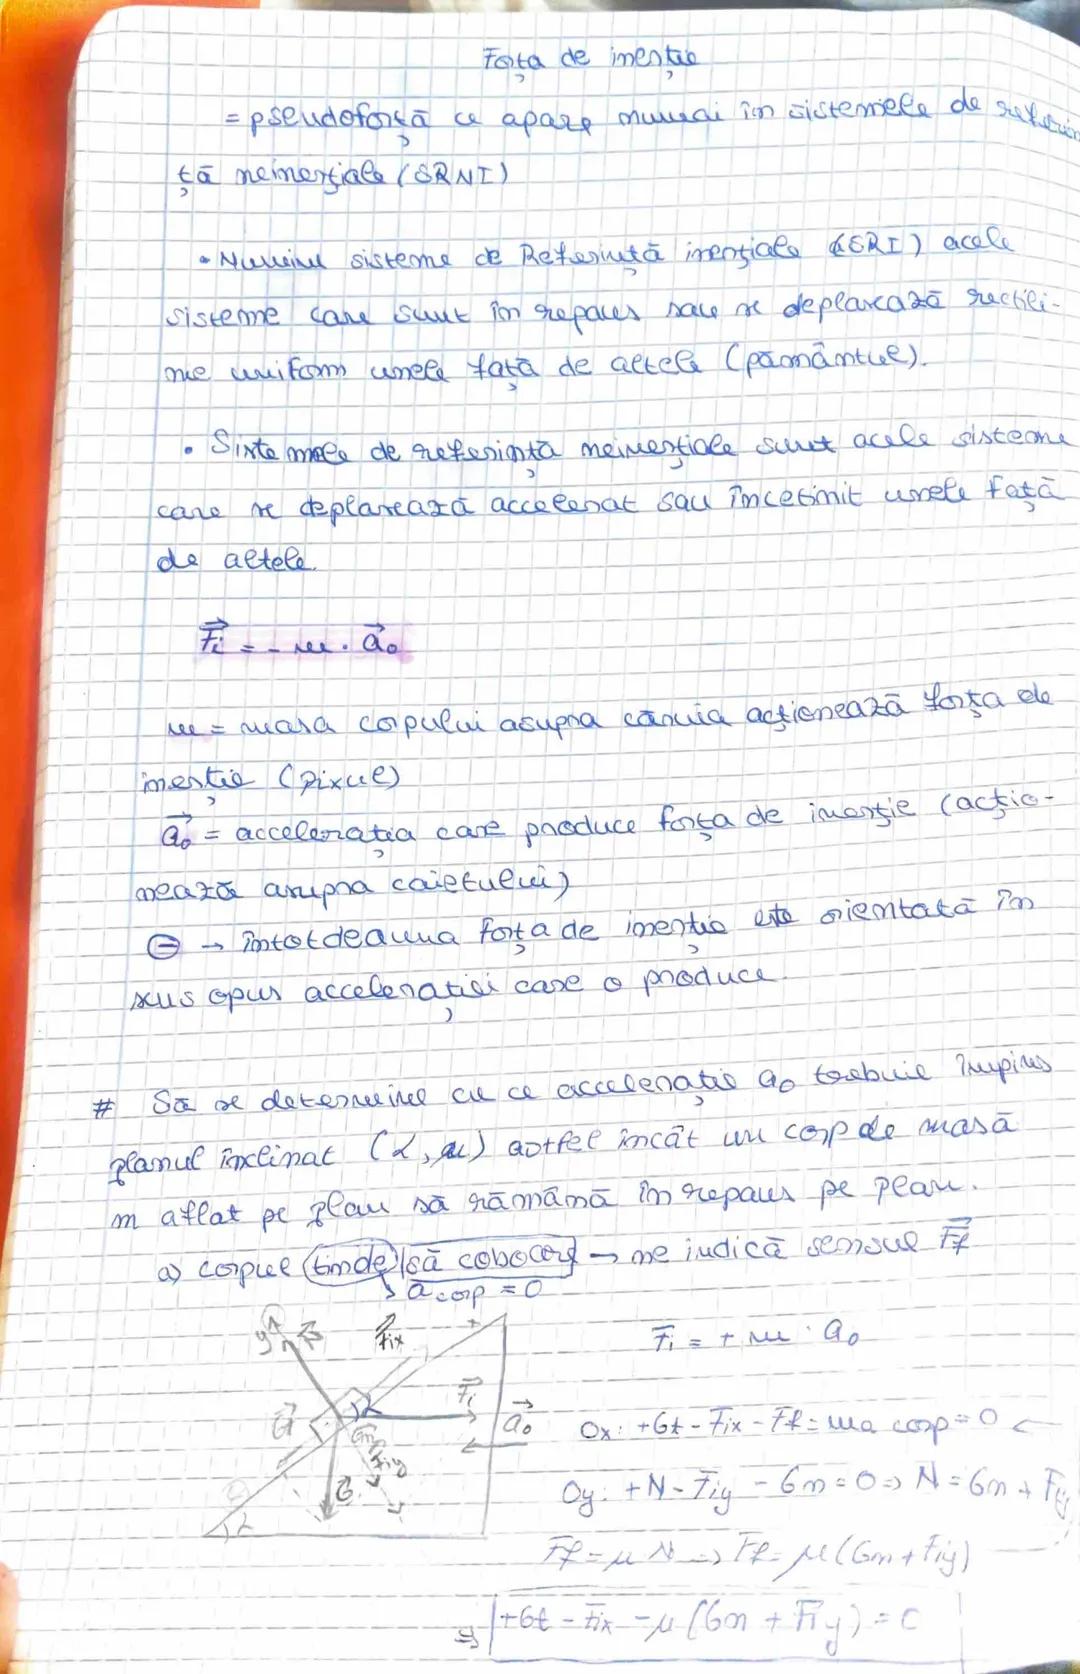 Forța de inerție
= pseudoforță ce apare numai în sistemele de referin
ță neinerțiale (SRNI)
• Numim sisteme de Referință inerțiale (SRI) acele
sisteme care sunt în repaus sau se deplasează rectili-
niu uniform unele față de altele (pământul).
• Sistemele de referință neinerțiale sunt acele sisteme
care se deplasează accelerat sau încetinit unele față
de altele.
F⃗i = - m · a⃗₀
m = masa corpului asupra căruia acționează forța de
inerție (pixul)
a⃗₀ = accelerația care produce forța de inerție (acțio-
nează asupra caietului)
⊖ → întotdeauna forța de inerție este orientată în
sens opus accelerației care o produce.
# Să se determine cu ce accelerație a₀ trebuie împins
planul înclinat (α, μ) astfel încât un corp de masă
m aflat pe plan să rămână în repaus pe plan.
a) corpul tinde să coboare → ne indică sensul F⃗f
a⃗ corp = 0
F⃗i = + m · a₀
y N⃗ Fix + F⃗i a⃗₀
α Gn Fiy G⃗ α
Ox: +Gt - Fix - Ff = ma corp = 0 ←
Oy: +N - Fiy - Gn = 0 => N = Gn + Fiy
Ff = μ N => Ff = μ(Gn + Fiy)
=> +Gt - Fix - μ (Gn + Fiy) = 0